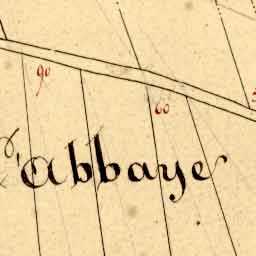 90
60
l'abbaye